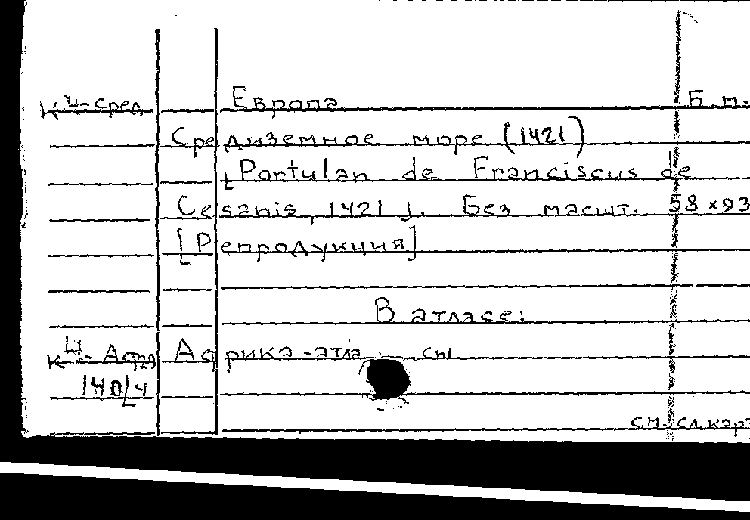 К Ц-сред Европа Б.м.
Средиземное море (1421)
[Portulan de Franciscus de
Cesanis, 1421]. Без масшт. 58×93
[Репродукция]
В атласе:
К Ц-Афр Африка-атла
140/4
см.сл.карт